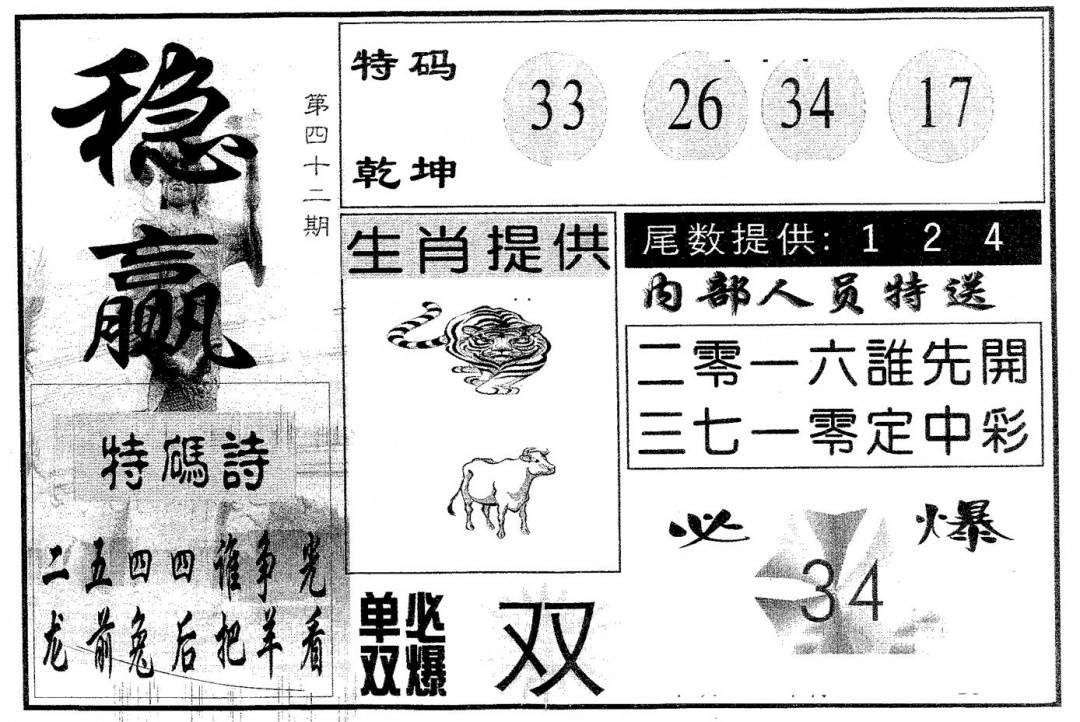 稳赢
第四十二期
特码
乾坤
33 26 34 17
生肖提供
尾数提供: 1 2 4
内部人员特送
二零一六誰先開
三七一零定中彩
特碼詩
二五四四谁争光
龙前兔后把羊看
单双必爆
双
必爆
34